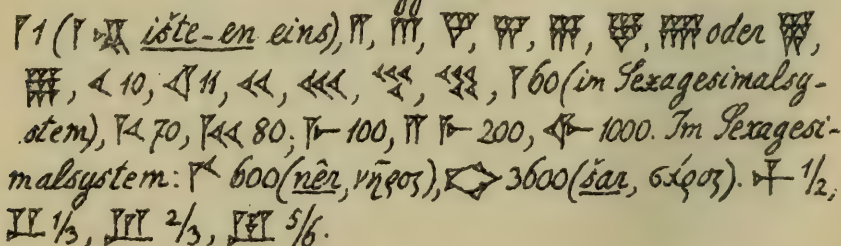 𒁹 1 (𒁹 𒂗 ište-en eins), 𒈫, 𒐈, 𒐉, 𒐊, 𒐋, 𒐌, 𒐍 oder
𒌋 10, 𒌋𒁹 11, 𒌋𒌋, 𒌋𒌋𒌋, 𒐏, 𒐐, 𒁹 60 (im Sexagesimalsy-
stem), 𒁹𒌋 70, 𒁹𒌋𒌋 80; 𒁹𒀸 100, 𒈫 𒁹𒀸 200, 𒌋𒁹𒀸 1000. Im Sexagesi-
malsystem: 𒐞 600 (nêr, νῆρος), 𒊹 3600 (šar, σάρος). 𒈦 1/2,
𒑚 1/3, 𒑛 2/3, 𒑜 5/6.